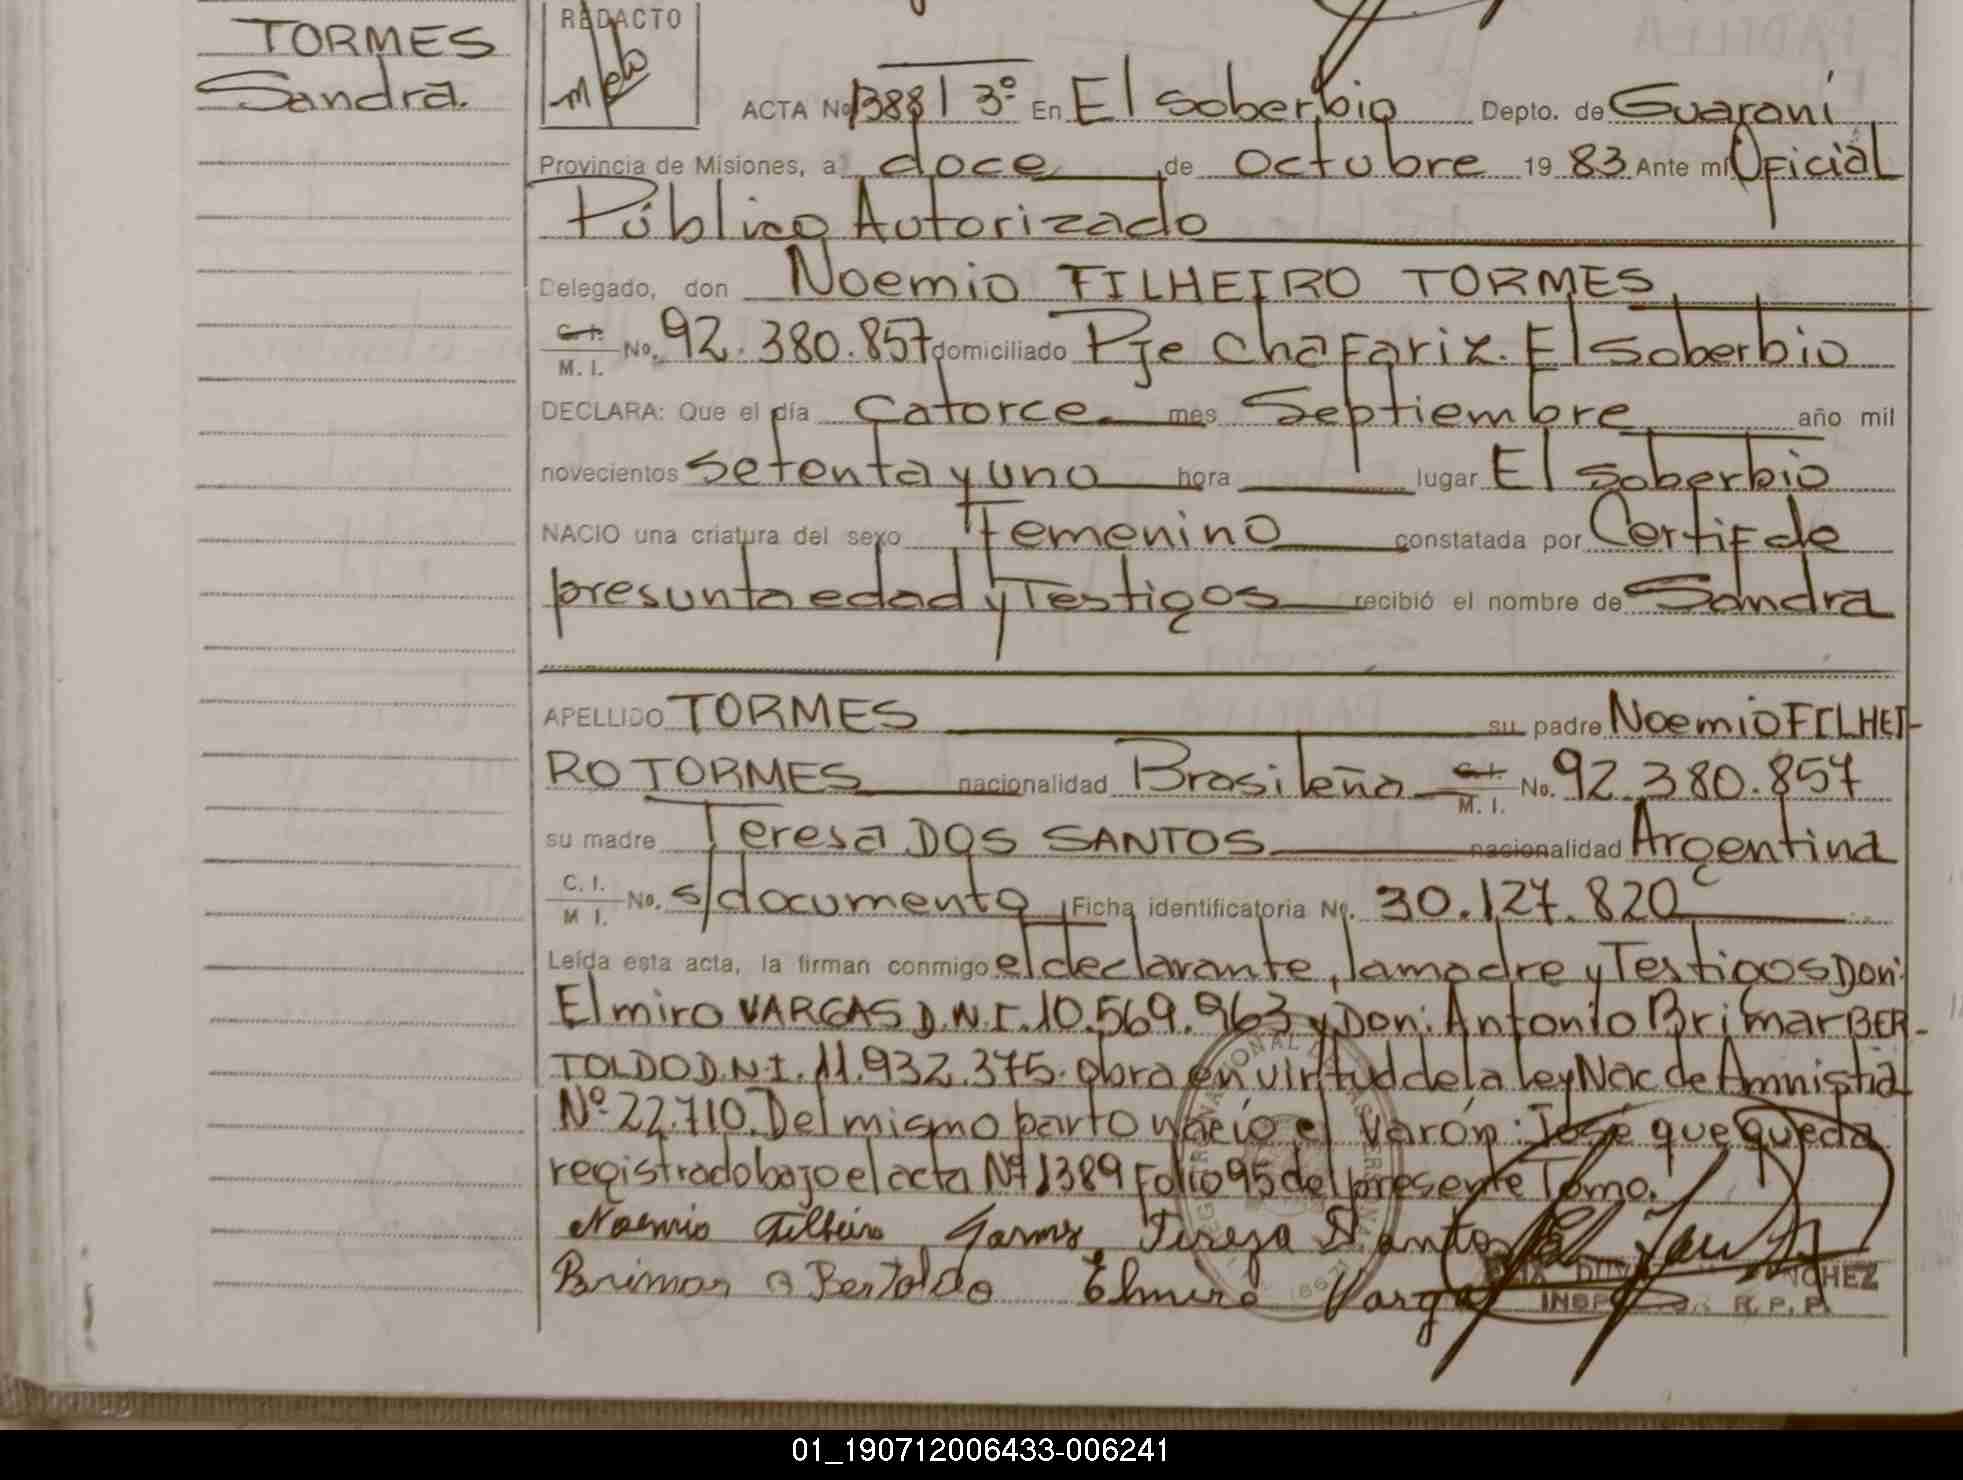 TORMES
Sandra.
REDACTO
ACTA No 1388 | 3º En El Soberbio Depto. de Guaraní
Provincia de Misiones, a doce de Octubre 19 83 Ante mí Oficial
Público Autorizado
Delegado, don Noemio FILHEIRO TORMES
C.I. M. I. No. 92.380.857 domiciliado Pje Chafariz. El Soberbio
DECLARA: Que el día Catorce mes Septiembre año mil
novecientos setenta y uno hora lugar El Soberbio
NACIO una criatura del sexo Femenino constatada por Certif de
presunta edad y Testigos recibió el nombre de Sandra
APELLIDO TORMES su padre Noemio FILHEI-
RO TORMES nacionalidad Brasileña C.I. M. I. No. 92.380.857
su madre Teresa DOS SANTOS nacionalidad Argentina
C. I. M I. No. s/documento Ficha identificatoria No. 30.127.820
Leída esta acta, la firman conmigo el declarante, la madre y Testigos Don:
Elmiro VARGAS D.N.I. 10.569.963 y Don: Antonio Brimar BER-
TOLDO D.N.I. 11.932.375. obra en virtud de la ley Nac de Amnistia
Nº 22.710. Del mismo parto nacío el Varón: José que queda
registrado bajo el acta Nº 1389 Folio 95 del presente Tomo.
Noemio Filheiro Tormes Tereza D Santos
Brimar A Bertoldo Elmiro Vargas
R. P. P.
01_190712006433-006241